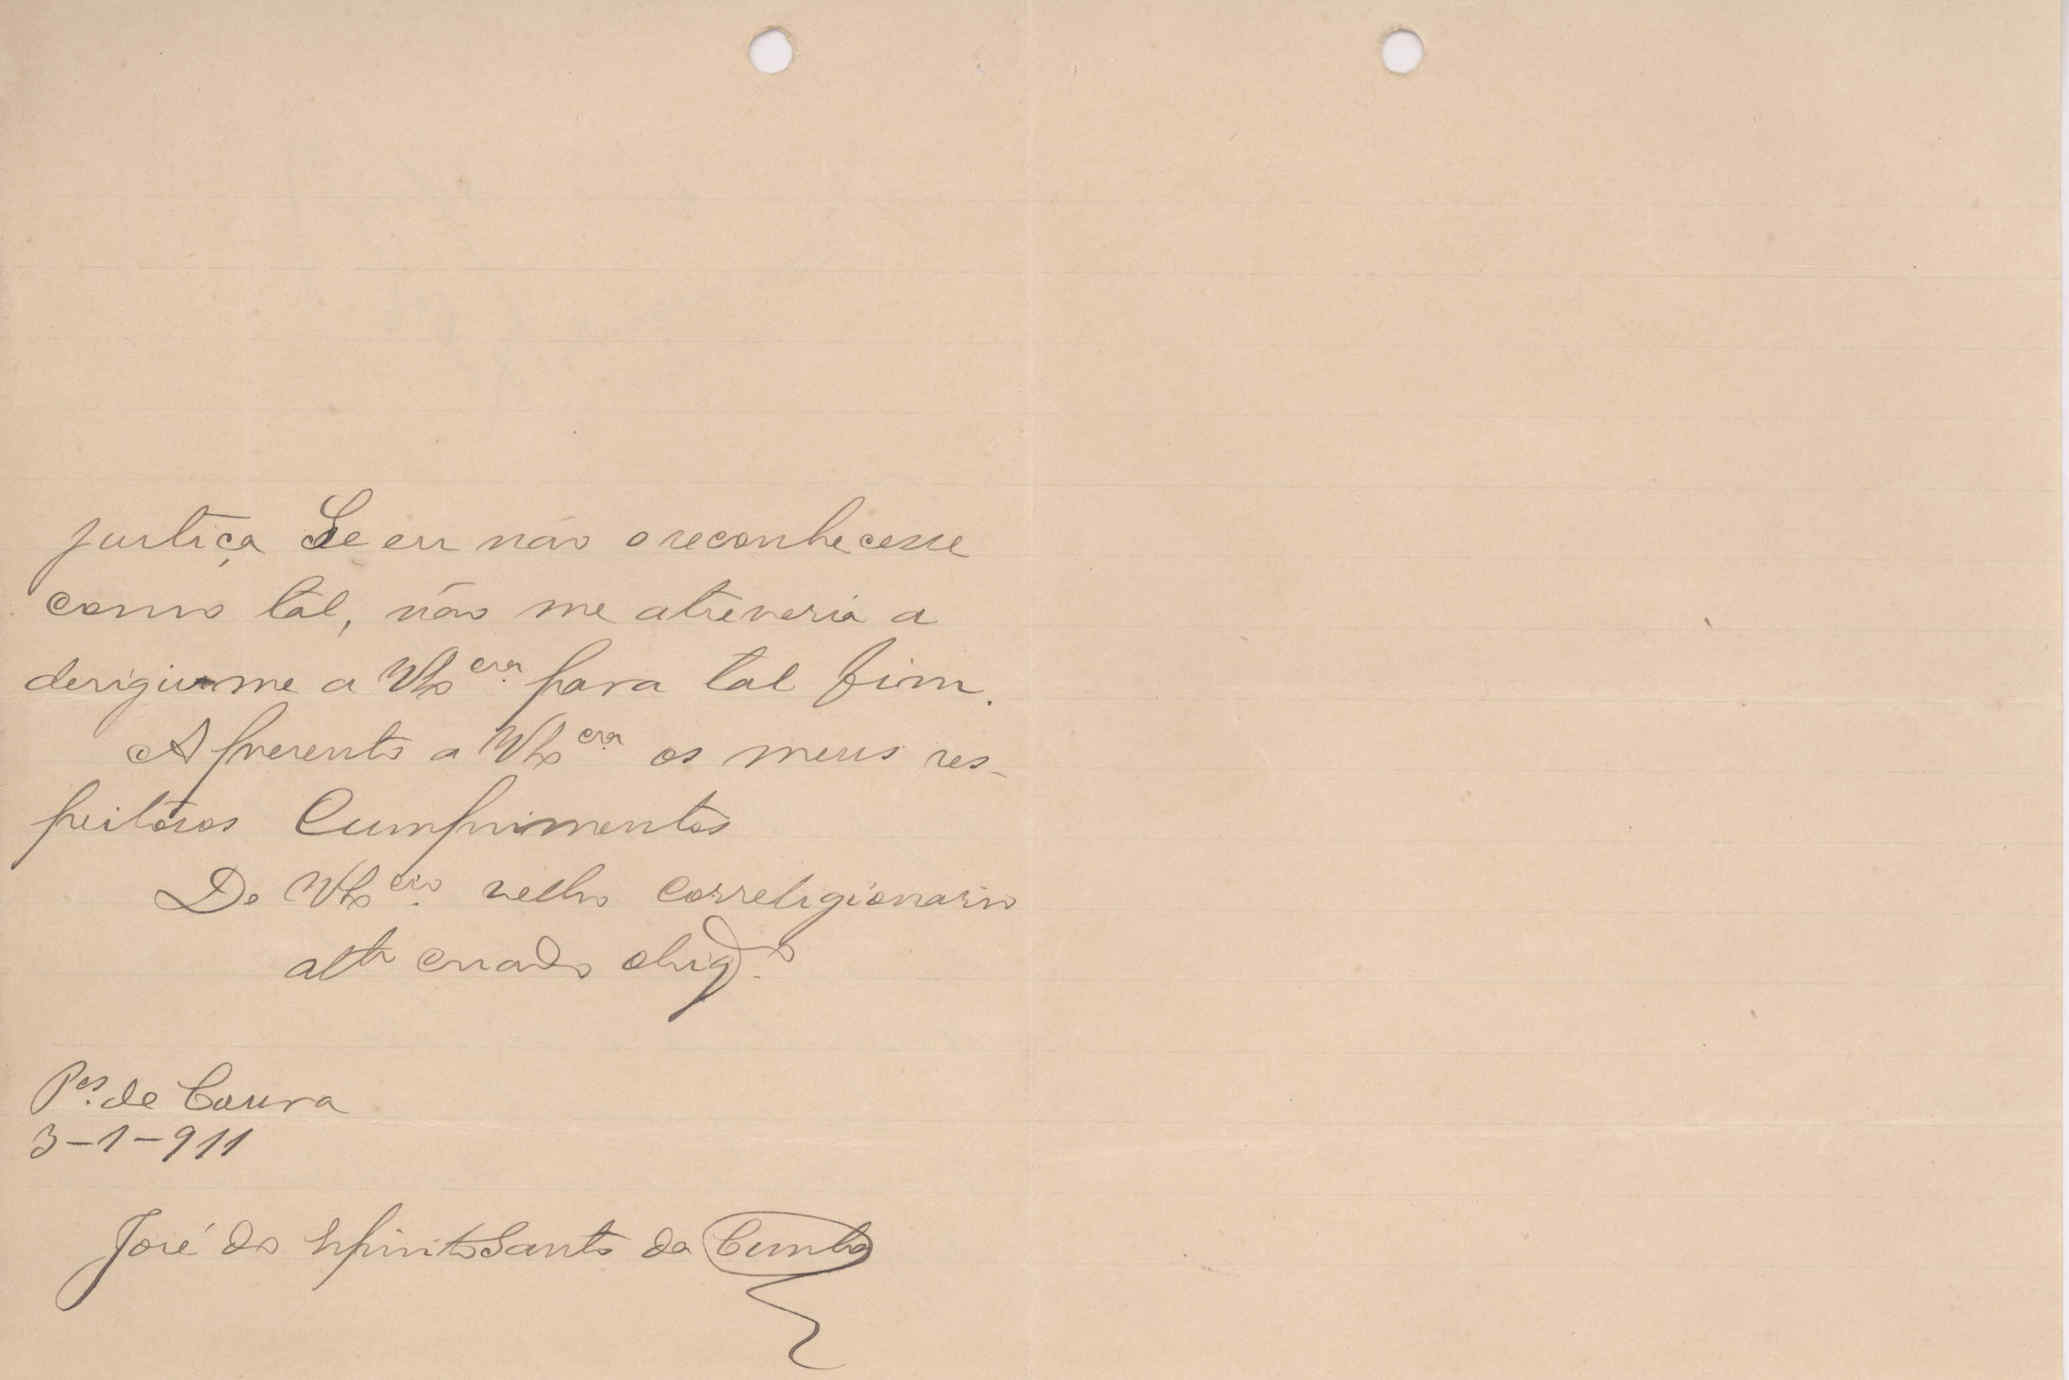 justiça Se eu não o reconhecesse
como tal, não me atreveria a
derigir-me a para tal fim.
Apresento a os meus res-
peitosos Cumprimentos
De velho correligionario
att.º criado obrig.º
P.es de Coura
3-1-911
José do Espirito Santo da Cunha